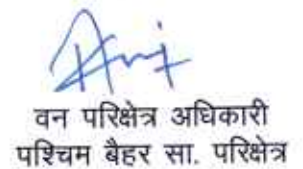 वन परिक्षेत्र अधिकारी
पश्चिम बैहर सा. परिक्षेत्र